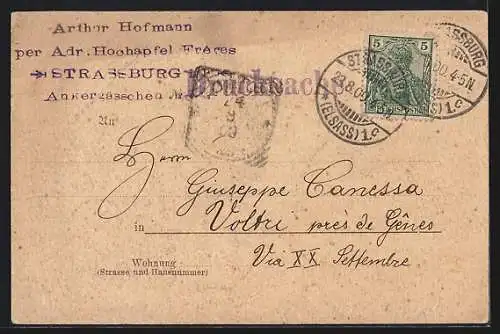 Arthur Hofmann
per Adr. Hochapfel Frères
→ STRASSBURG
Ankergässchen
Drucksache
5 5
STRASSBURG
(ELSASS) 1.c
STRASSBURG
4-5N.
1.c
An
Herrn
Giuseppe Canessa
in Voltri près de Gênes
Via XX Settembre
Wohnung
(Strasse und Hausnummer)